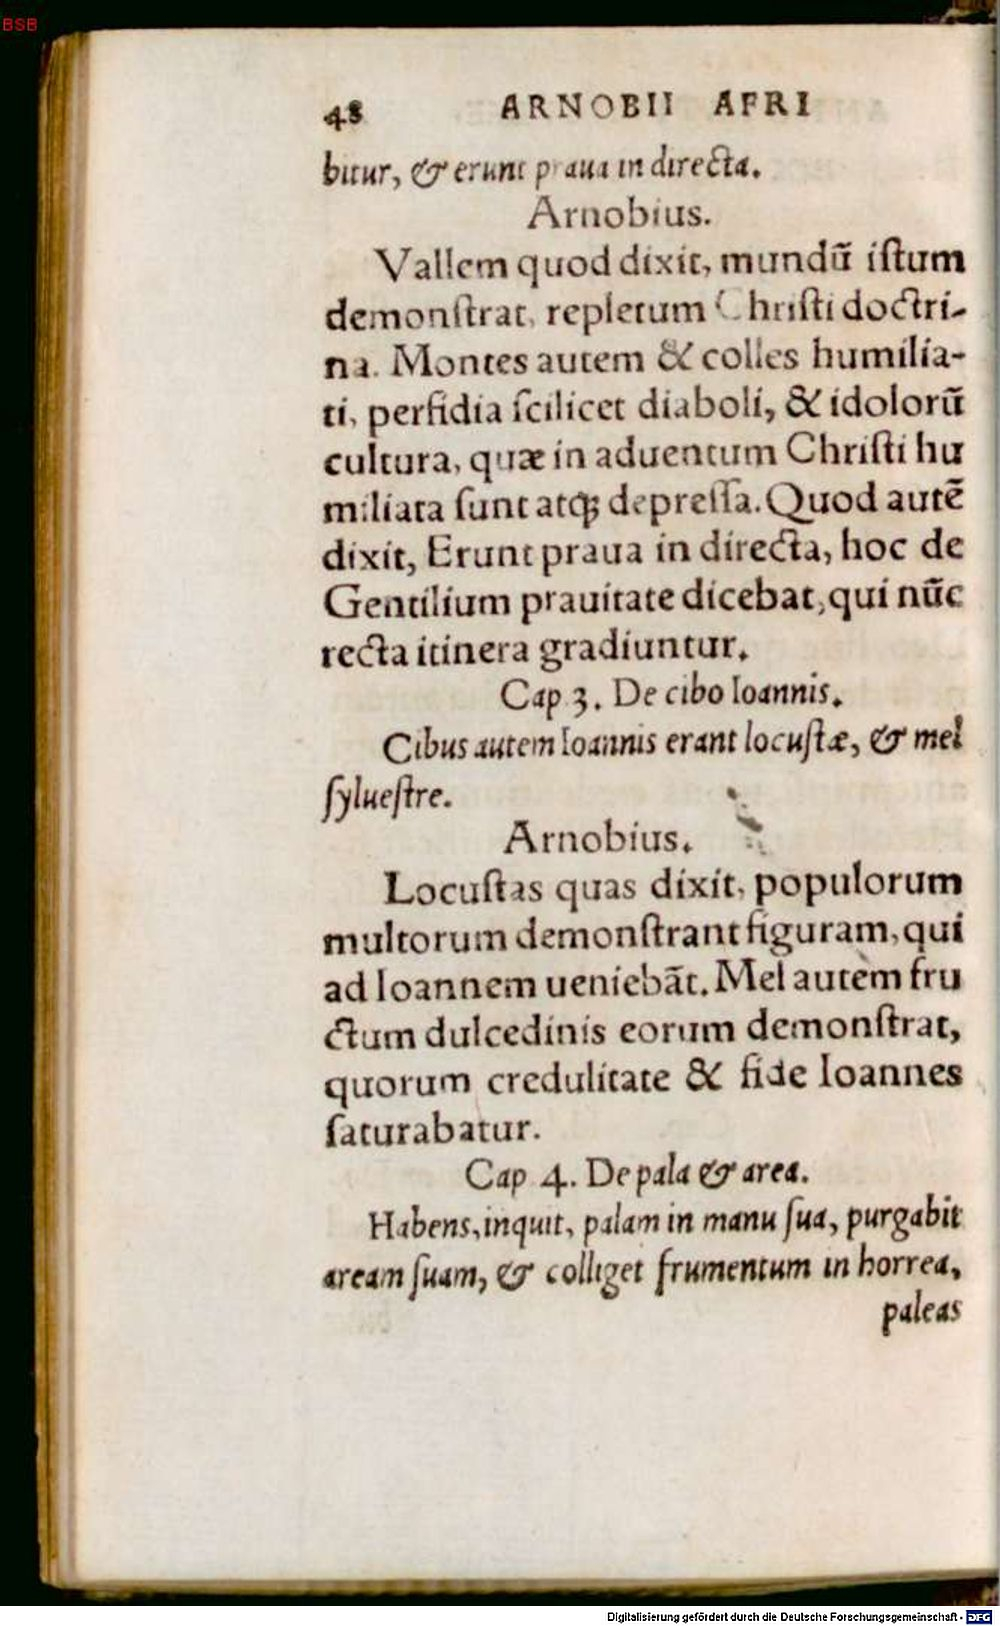 BSB
48 ARNOBII AFRI
bitur, & erunt praua in directa.
Arnobius.
Vallem quod dixit, mundū iſtum
demonſtrat, repletum Chriſti doctri-
na. Montes autem & colles humilia-
ti, perfidia ſcilicet diaboli, & idolorū
cultura, quæ in aduentum Chriſti hu
miliata ſunt atq; depreſſa. Quod autē
dixit, Erunt praua in directa, hoc de
Gentilium prauitate dicebat, qui nūc
recta itinera gradiuntur.
Cap 3. De cibo Ioannis.
Cibus autem Ioannis erant locuſtæ, & mel
ſylueſtre.
Arnobius.
Locuſtas quas dixit, populorum
multorum demonſtrant figuram, qui
ad Ioannem ueniebāt. Mel autem fru
ctum dulcedinis eorum demonſtrat,
quorum credulitate & fide Ioannes
ſaturabatur.
Cap 4. De pala & area.
Habens, inquit, palam in manu ſua, purgabit
aream ſuam, & colliget frumentum in horrea,
paleas
Digitalisierung gefördert durch die Deutsche Forschungsgemeinschaft - DFG